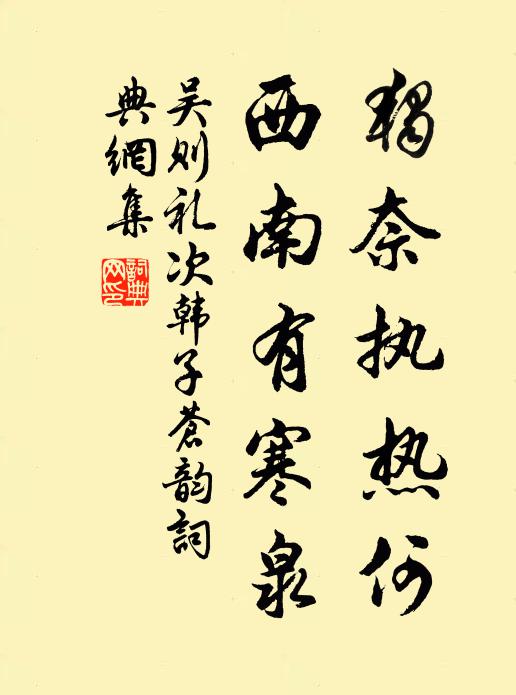 独奈执热何
西南有寒泉
吴则礼次韩子苍韵詞
典網集
詞典網印